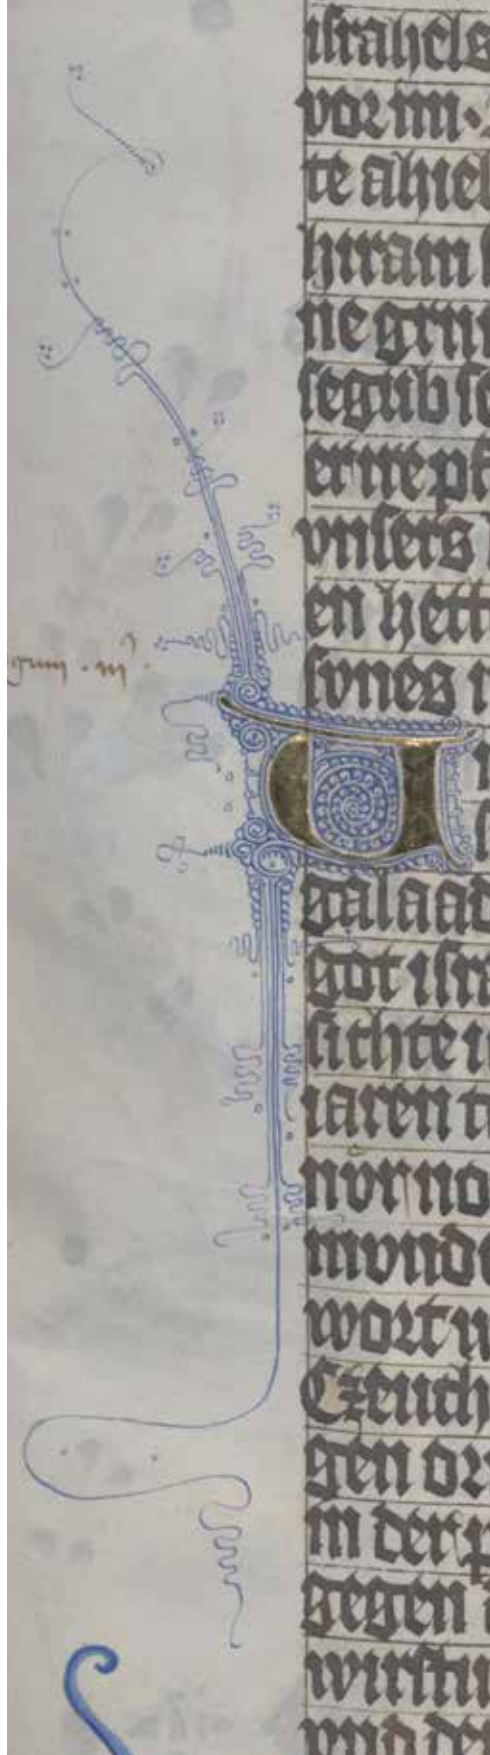 israhels
vor im ·
te ahiel
hiram
ne grun
segub se
vnsers
en hett
sones
galaad
got isra
sichte i
iaren t
nvr no
mvnd
wort
Czeuch
gen or
in der p
gegen
wirstu
vnd de